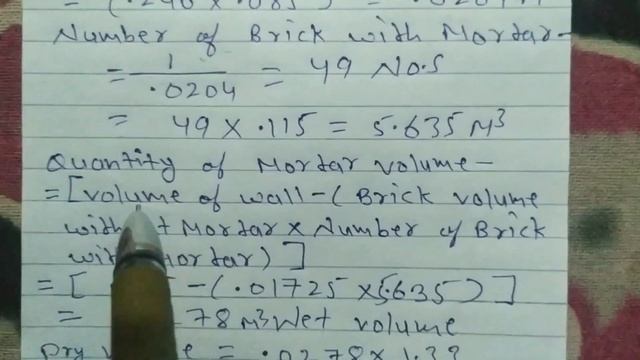 = (.240 × .085)
Number of Brick with Mortar-
= 1/.0204 = 49 No.s
= 49 × .115 = 5.635 M³
Quantity of Mortar volume-
= [volume of wall-( Brick volume
Mortar × Number of Brick
Mortar) ]
= [ -(.01725 × 5.635) ]
= 78 M³ Wet volume
Dry = .0278 × 1.33